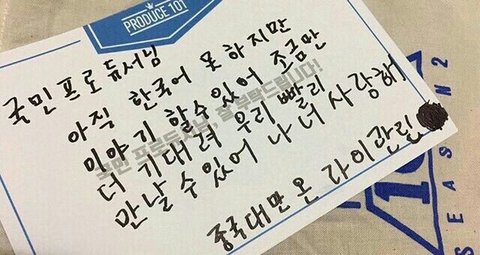 PRODUCE 101
국민 프로듀서님
아직 한국어 못 하지만
이야기 할수 있어 조금만
더 기대려 우리 빨리
만날 수 있어 나 너 사랑해
중국대만 온 라이관린
국민 프로듀서님, 잘 부탁드립니다!
10
SEASON2